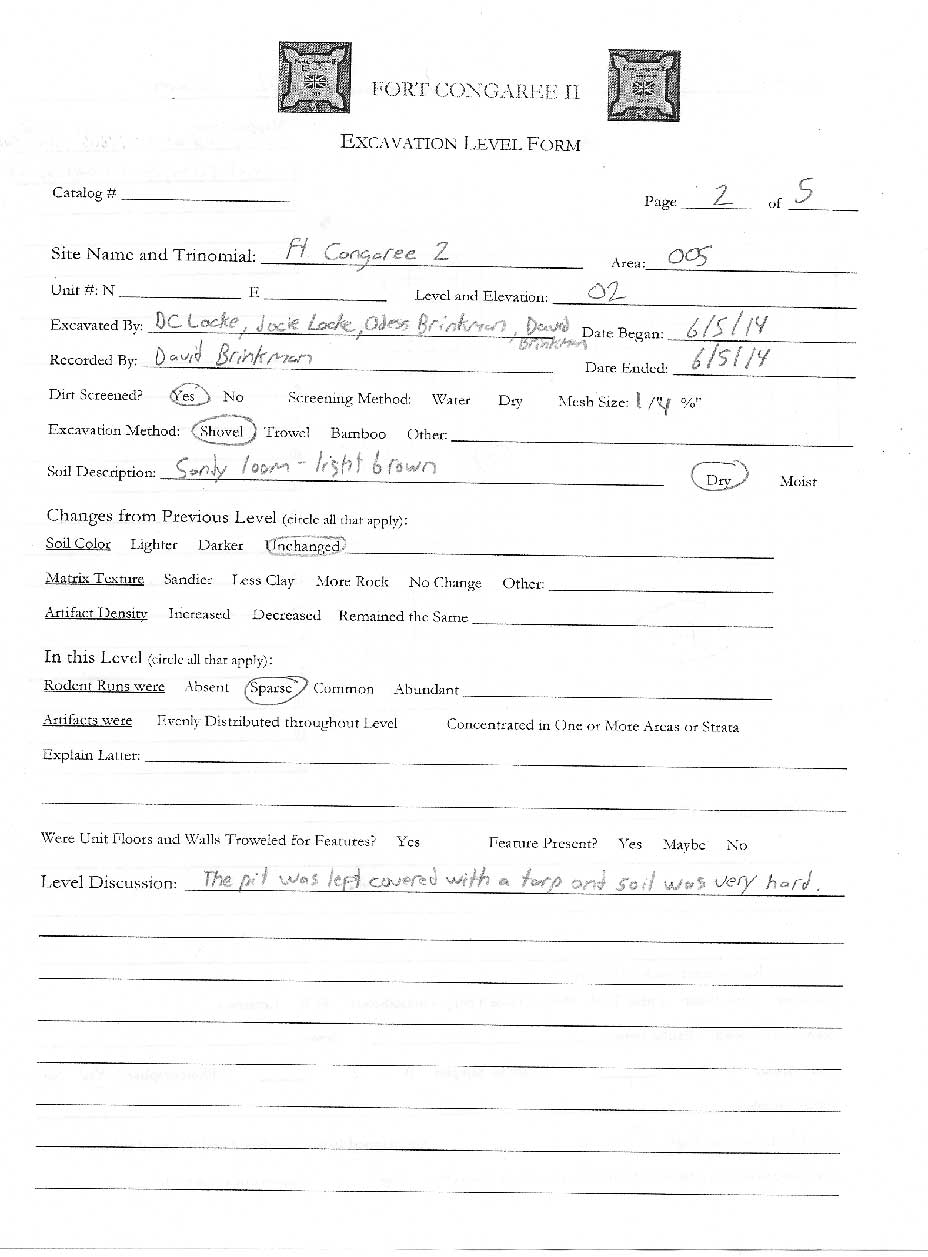 FORT CONGAREE II
EXCAVATION LEVEL FORM
Catalog #
Page 2 of 5
Site Name and Trinomial: Ft Congaree 2 Area: 005
Unit #: N E Level and Elevation: 02
Excavated By: DC Locke, Jocie Locke, Odess Brinkman, David Brinkman Date Began: 6/5/14
Recorded By: David Brinkman Date Ended: 6/5/14
Dirt Screened? Yes No Screening Method: Water Dry Mesh Size: 1/4" %"
Excavation Method: Shovel Trowel Bamboo Other:
Soil Description: Sandy loam - light brown Dry Moist
Changes from Previous Level (circle all that apply):
Soil Color Lighter Darker Unchanged
Matrix Texture Sandier Less Clay More Rock No Change Other:
Artifact Density Increased Decreased Remained the Same
In this Level (circle all that apply):
Rodent Runs were Absent Sparse Common Abundant
Artifacts were Evenly Distributed throughout Level Concentrated in One or More Areas or Strata
Explain Latter:
Were Unit Floors and Walls Troweled for Features? Yes Feature Present? Yes Maybe No
Level Discussion: The pit was left covered with a tarp and soil was very hard.